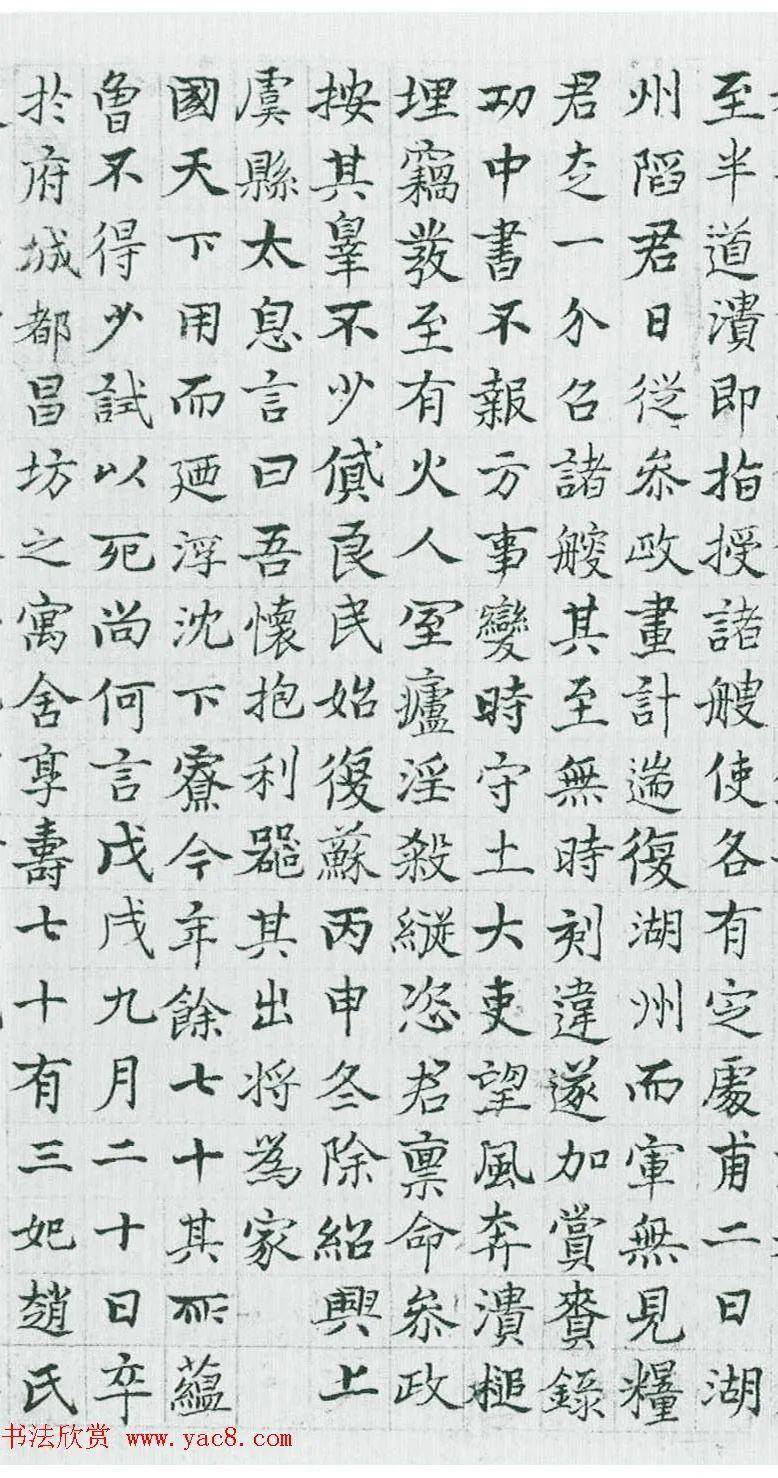 至半道潰即指授諸艘使各有定處甫二日湖
州陷君日從叅政畫計遄復湖州而軍無見糧
君乏一分召諸艘其至無時刻違遂加賞賚錄
功中書不報方事變時守土大吏望風奔潰槌
埋竊發至有火人室廬淫殺縱恣君稟命叅政
按其辠不少貸良民始復蘇丙申冬除紹興上
虞縣太息言曰吾懷抱利器其出将為家
國天下用而廼浮沈下寮今年餘七十其所蘊
曾不得少試以死尚何言戊戌九月二十日卒
於府城都昌坊之寓舍享壽七十有三妃趙氏
书法欣赏 www.yac8.com